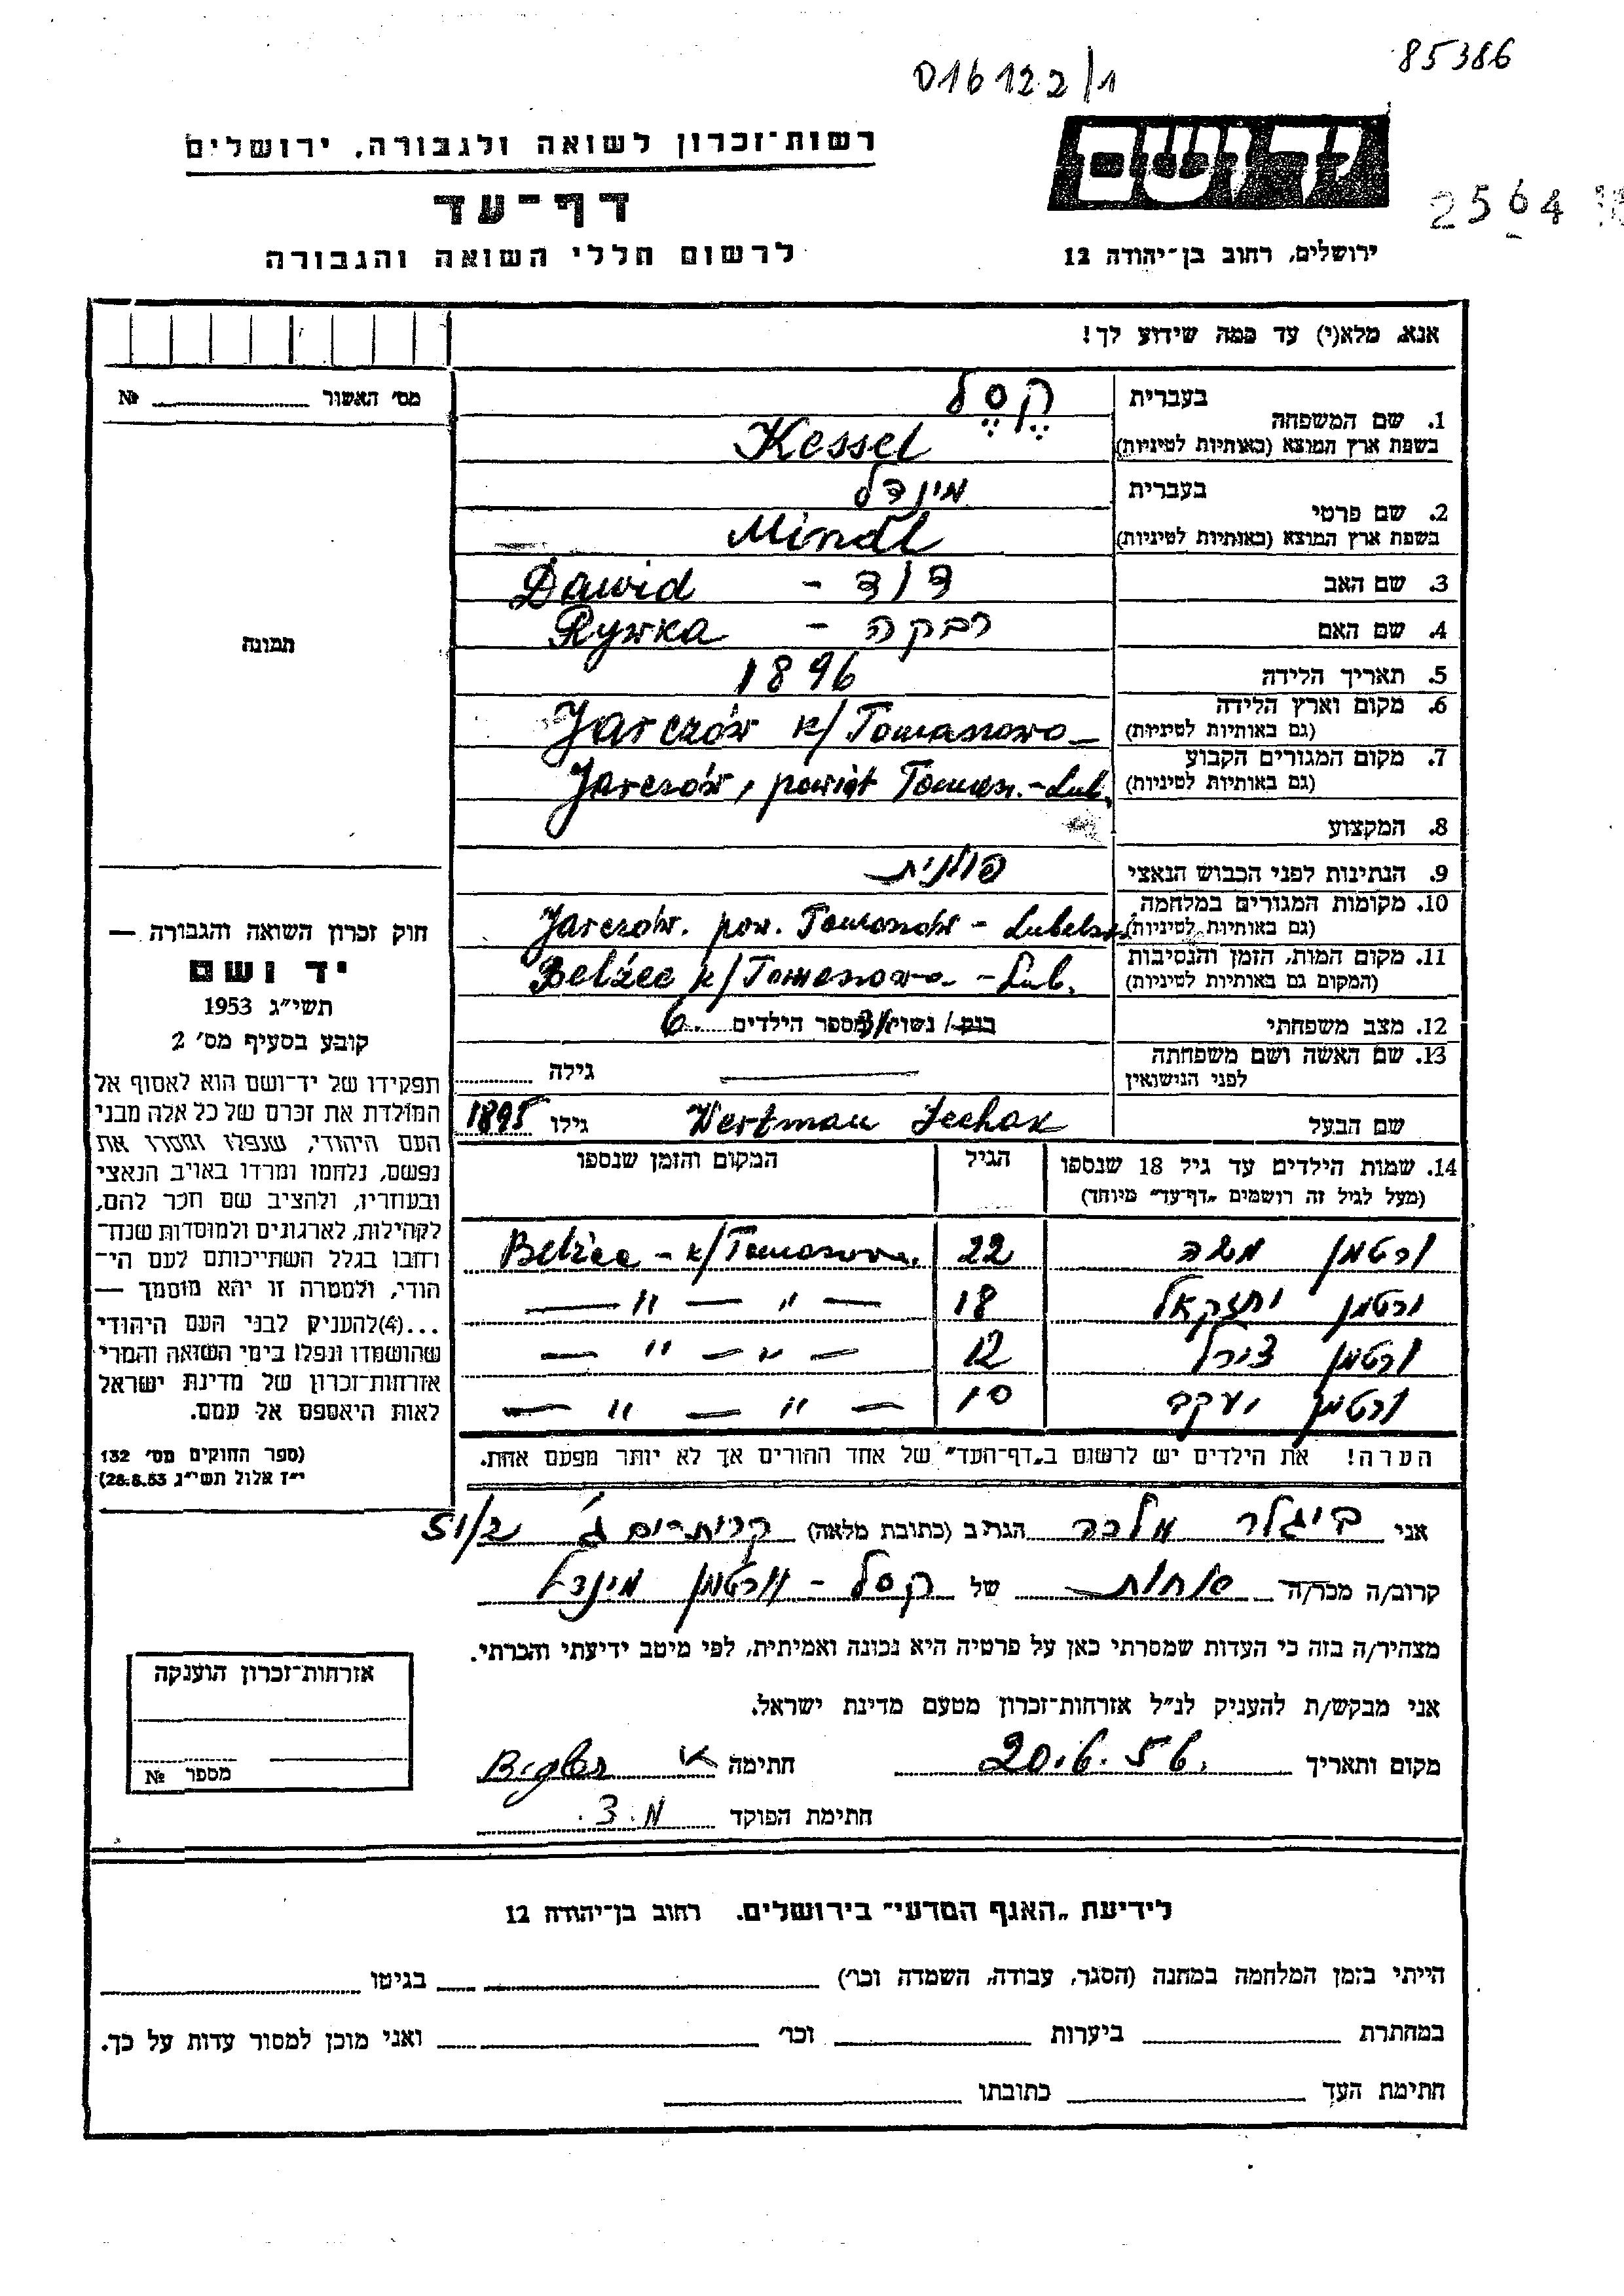 016122/1
85386
רשות־זכרון לשואה ולגבורה, ירושלים
דף־עד
לרשום חללי השואה והגבורה
יד ושם
2564
ירושלים, רחוב בן־יהודה 12
אנא, מלא(י) עד כמה שידוע לך!
מס׳ האשור № 
1. שם המשפחה בעברית קֶסֶל
בשפת ארץ המוצא (באותיות לטיניות) Kessel
2. שם פרטי בעברית מינדל
בשפת ארץ המוצא (באותיות לטיניות) Mindl
3. שם האב דוד - Dawid
4. שם האם רבקה - Rywka
5. תאריך הלידה 1896
6. מקום וארץ הלידה (גם באותיות לטיניות) Jarczów k/Tomaszowa
7. מקום המגורים הקבוע (גם באותיות לטיניות) Jarczów, powiat Tomasz.-Lub.
8. המקצוע
9. הנתינות לפני הכבוש הנאצי פולנית
10. מקומות המגורים במלחמה (גם באותיות לטיניות) Jarczów. pow. Tomaszów - Lubelski
11. מקום המות, הזמן והנסיבות (המקום גם באותיות לטיניות) Bełżec k/Tomaszowa - Lub.
12. מצב משפחתי רוק/ נשוי/אה מספר הילדים 6
13. שם האשה ושם משפחתה לפני הנישואין גילה
שם הבעל Wertman Icchak גילו 1895
14. שמות הילדים עד גיל 18 שנספו הגיל המקום והזמן שנספו
(מעל לגיל זה רושמים „דף־עד״ מיוחד)
ורטמן משה 22 Bełżec - k/Tomaszowa.
ורטמן יחזקאל 18 — " — " —
ורטמן צירל 12 — " — " —
ורטמן יעקב 10 — " — " —
הערה! את הילדים יש לרשום ב„דף־העד״ של אחד ההורים אך לא יותר מפעם אחת.
תמונה
חוק זכרון השואה והגבורה —
יד ושם
תשי״ג 1953
קובע בסעיף מס׳ 2
תפקידו של יד־ושם הוא לאסוף אל
המולדת את זכרם של כל אלה מבני
העם היהודי, שנפלו ומסרו את
נפשם, נלחמו ומרדו באויב הנאצי
ובעוזריו, ולהציב שם וזכר להם,
לקהילות, לארגונים ולמוסדות שנח־
רבו בגלל השתייכותם לעם הי־
הודי, ולמטרה זו יהא מוסמך —
...(4) להעניק לבני העם היהודי
שהושמדו ונפלו בימי השואה והמרי
אזרחות־זכרון של מדינת ישראל
לאות היאספם אל עמם.
(ספר החוקים מס׳ 132
י״ז אלול תשי״ג 28.8.53)
אני ביגלר מלכה הגר/ב (כתובת מלאה) קרית חיים ג׳ 51/2
קרוב/ה מכר/ה אחות של קסל - ורטמן מינדל
מצהיר/ה בזה כי העדות שמסרתי כאן על פרטיה היא נכונה ואמיתית, לפי מיטב ידיעתי והכרתי.
אני מבקש/ת להעניק לנ״ל אזרחות־זכרון מטעם מדינת ישראל.
מקום ותאריך 20.6.56. חתימה Bigler
חתימת הפוקד מ.צ.
אזרחות־זכרון הוענקה
מספר №
לידיעת „האגף המדעי״ בירושלים, רחוב בן־יהודה 12
הייתי בזמן המלחמה במחנה (הסגר, עבודה, השמדה וכו׳) בגיטו
במחתרת ביערות וכו׳ ואני מוכן למסור עדות על כך.
חתימת העד כתובתו